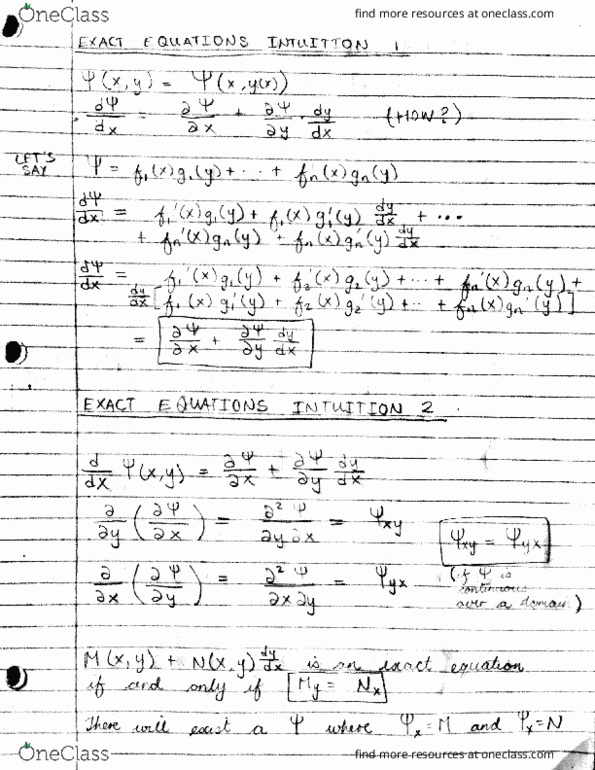 OneClass
find more resources at oneclass.com
EXACT EQUATIONS INTUITION 1
Ψ(x,y) = Ψ(x,y(x))
dΨ/dx = ∂Ψ/∂x + ∂Ψ/∂y · dy/dx (HOW?)
LET'S SAY Ψ = f₁(x)g₁(y) + ·· + fₙ(x)gₙ(y)
dΨ/dx = f₁'(x)g₁(y) + f₁(x)g₁'(y) dy/dx + ···
+ fₙ'(x)gₙ(y) + fₙ(x)gₙ'(y) dy/dx
dΨ/dx = f₁'(x)g₁(y) + f₂'(x)g₂(y) + ·· + fₙ'(x)gₙ(y) +
dy/dx [f₁(x)g₁'(y) + f₂(x)g₂'(y) + ·· + fₙ(x)gₙ'(y)]
= ∂Ψ/∂x + ∂Ψ/∂y dy/dx
EXACT EQUATIONS INTUITION 2
d/dx Ψ(x,y) = ∂Ψ/∂x + ∂Ψ/∂y dy/dx
∂/∂y (∂Ψ/∂x) = ∂²Ψ/∂y∂x = Ψxy
Ψxy = Ψyx
∂/∂x (∂Ψ/∂y) = ∂²Ψ/∂x∂y = Ψyx
(if Ψ is
continuous
over a domain)
M(x,y) + N(x,y) dy/dx is an exact equation
if and only if My = Nx
There will exist a Ψ where Ψx = M and Ψx = N
OneClass
find more resources at oneclass.com